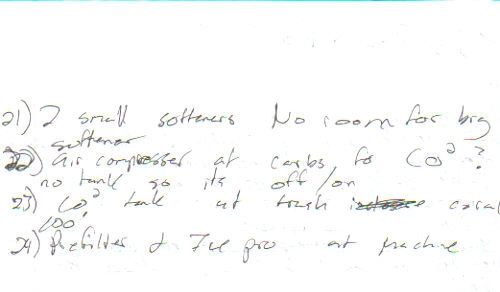 21) 2 small softeners No room for big
softener
22) air compresser at carbs for CO² ?
no tank so its off/on
23) CO² tank at trash
100?
24) Prefilter & Ice pro at machine